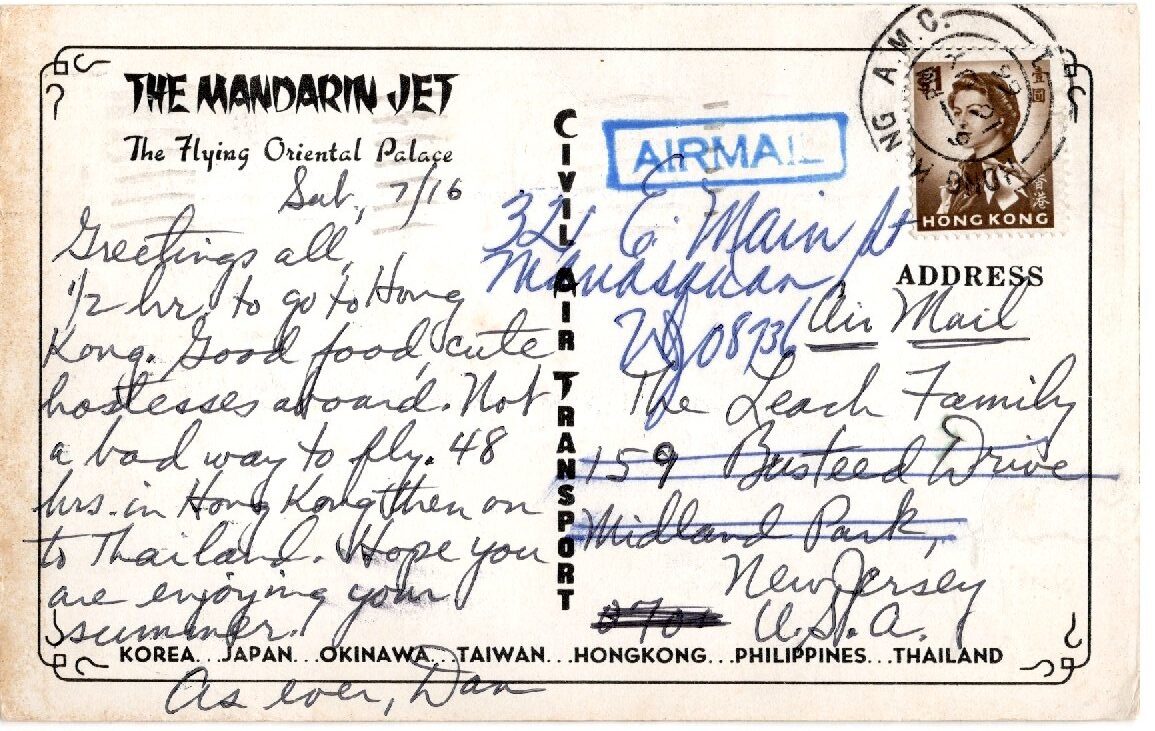 THE MANDARIN JET
The Flying Oriental Palace
Sat., 7/16
Greetings all,
1/2 hr. to go to Hong
Kong. Good food, cute
hostesses aboard. Not
a bad way to fly. 48
hrs. in Hong Kong then on
to Thailand. Hope you
are enjoying your
summer.
As ever, Dan
CIVIL AIR TRANSPORT
AIRMAIL
$1
壹圓
香港
HONG KONG
A.M.C.
KONG
321 E. Main St
Manasquan
NJ 08736
ADDRESS
Air Mail
The Leach Family
159 Busteed Drive
Midland Park,
New Jersey
U.S.A.
KOREA...JAPAN...OKINAWA...TAIWAN...HONGKONG...PHILIPPINES...THAILAND